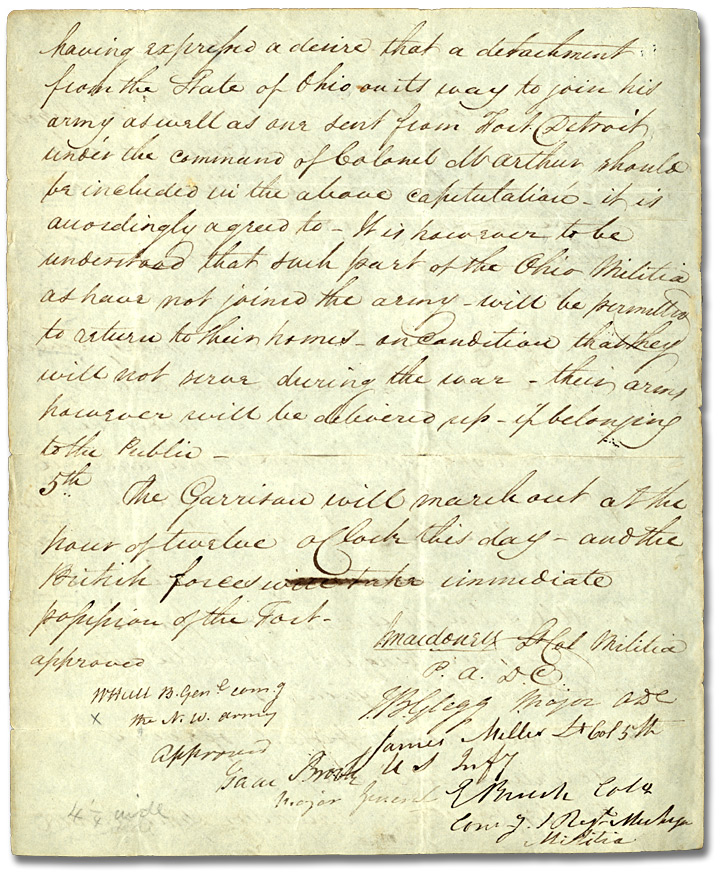 having expressed a desire that a detachment
from the State of Ohio on its way to join his
army as well as one sent from Fort Detroit
under the command of Colonel McArthur should
be included in the above capitulation - it is
accordingly agreed to - It is however to be
understood that such part of the Ohio Militia
as have not joined the army - will be permitted
to return to their homes - on condition that they
will not serve during the war - their arms
however will be delivered up - if belonging
to the Public -
5th The Garrison will march out at the
hour of twelve o'Clock this day - and the
British forces will take immediate
possession of the Fort -
J Macdonell Lt Col Militia
P. A. D C.
approved
W Hull B. Genl comg
x the N. W. army
J B Glegg Major ADC
James Miller Lt Col 5th
U S Infy
approved
Isaac Brock
Major General
E Brush Col
Comg. 1 Regt Michigan
Militia
4 1/4 wide